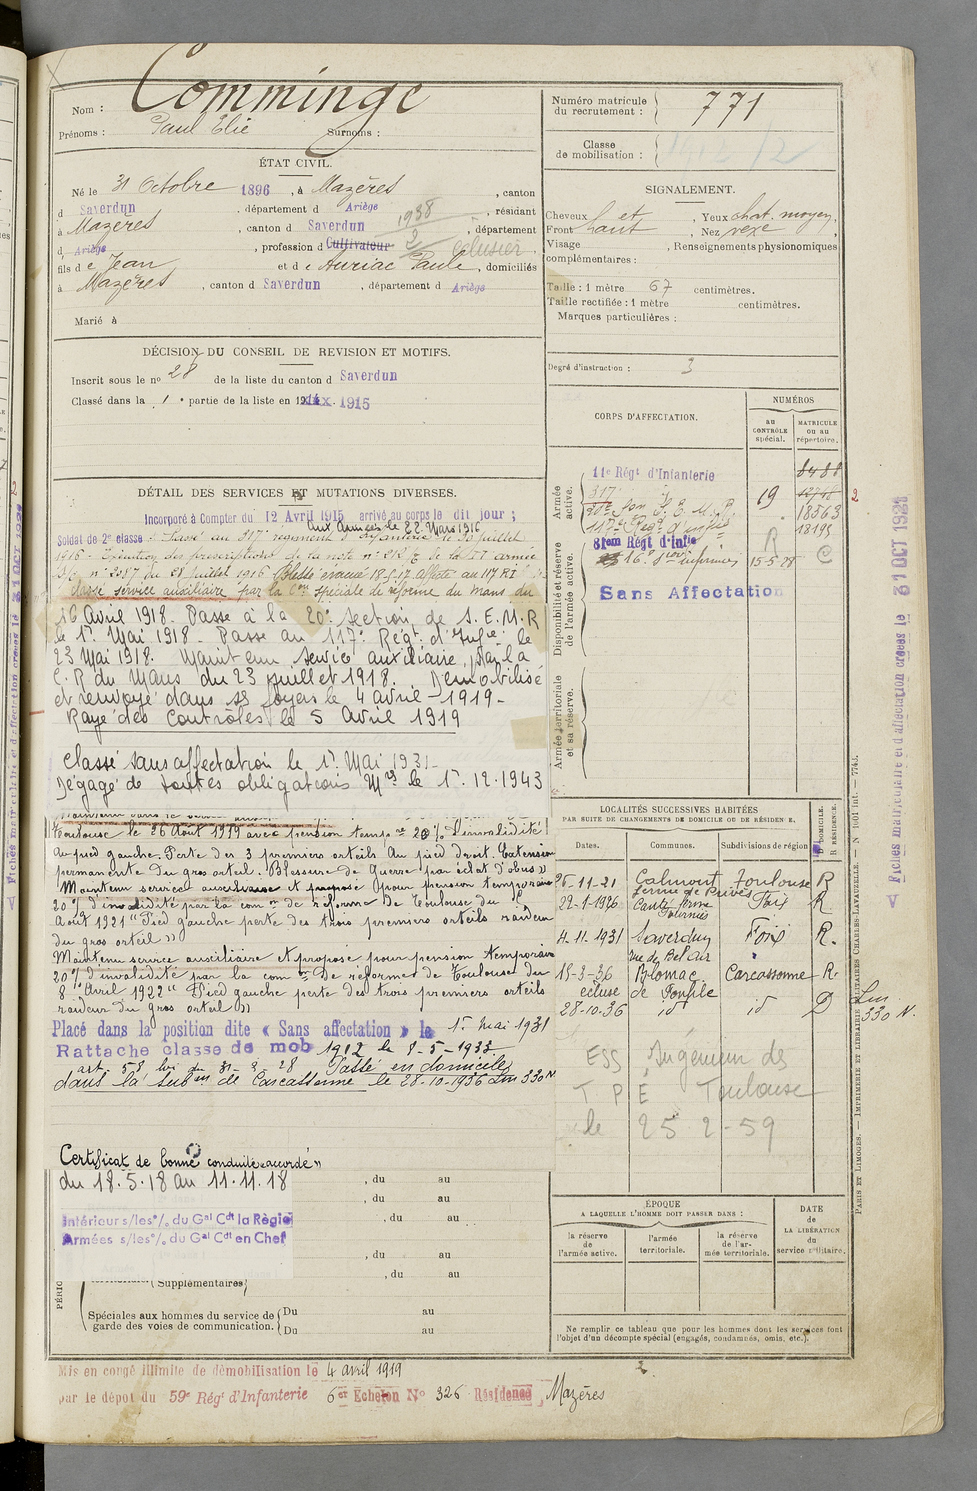 Nom : Comminge
Prénoms : Paul Elie Surnoms :
ÉTAT CIVIL.
Né le 31 Octobre 1896, à Mazères, canton
d Saverdun, département d Ariège, résidant
à Mazères, canton d Saverdun, département
d Ariège, profession d Cultivateur éclusier
fils de Jean et de Auriac Paule, domiciliés
à Mazères, canton d Saverdun, département d Ariège
Marié à
DÉCISION DU CONSEIL DE REVISION ET MOTIFS.
Inscrit sous le no 28 de la liste du canton d Saverdun
Classé dans la 1 partie de la liste en 1915
DÉTAIL DES SERVICES ET MUTATIONS DIVERSES.
Incorporé à Compter du 12 Avril 1915 arrivé au corps le dit jour ;
aux Armées le 22 Mars 1916
Soldat de 2e classe. Passé au 317e regiment d'infanterie le 30 juillet
1916 - Exécution des prescriptions de la note n°
du 28 juillet 1916 Blessé évacué 18.5.17 affecté au 117 R I
classé service auxiliaire par la Con spéciale de réforme du Mans du
16 Avril 1918. Passé à la 20e section de S. E. M. R
le 1er Mai 1918 - Passé au 117e Régt d'Infie le
23 Mai 1918. Maintenu service auxiliaire par la
C. R du Mans du 23 juillet 1918. Démobilisé
et renvoyé dans ses foyers le 4 avril - 1919 -
Rayé des Contrôles le 5 Avril 1919
Classé sans affectation le 1er Mai 1931 -
Dégagé de toutes obligations Mres le 1er.12.1943
Toulouse le 26 Août 1919 avec pension tempre 20% d'invalidité
Au pied gauche. Perte des 3 premiers orteils Au pied droit. Extension
permanente du gros orteil. Blessure de Guerre par éclat d'obus »
Maintenu service auxiliaire et proposé pour pension temporaire
20% d'invalidité par la comon de réforme de Toulouse du
Août 1921 "Pied gauche perte des trois premiers orteils raideur
du gros orteil »
Maintenu service auxiliaire et proposé pour pension temporaire
20% d'invalidité par la comon de réforme de Toulouse du
8 Avril 1922 " Pied gauche perte des trois premiers orteils
raideur du gros orteil »
Placé dans la position dite « Sans affectation » le 1er mai 1931
Rattaché classe de mob 1912 le 8-5-1933
art. 58 loi du 31-3-28 Passé en domicile
dans la subon de Carcassonne le 28-10-1936 Lm 330 N
Certificat de bonne conduite « accordé »
du 18.5.18 au 11.11.18
Intérieur s/les o/o du Gal Cdt la Région
Armées s/les o/o du Gal Cdt en Chef
, du au
, du au
, du au
, du au
, du au
Supplémentaires
Spéciales aux hommes du service de
garde des voies de communication.
Du au
Du au
Mis en congé illimité de démobilisation le 4 avril 1919
par le dépôt du 59e Régt d'Infanterie 6er Echelon No 326 Résidence Mazères
Numéro matricule
du recrutement : 771
Classe
de mobilisation : 1912
SIGNALEMENT.
Cheveux , Yeux chat. moyen,
Front haut , Nez vexe,
Visage , Renseignements physionomiques
complémentaires :
Taille : 1 mètre 67 centimètres.
Taille rectifiée : 1 mètre centimètres.
Marques particulières :
Degré d'instruction : 3
CORPS D'AFFECTATION.
NUMÉROS
au
CONTRÔLE
spécial.
MATRICULE
OU AU
répertoire.
Armée
active.
11e Régt d'Infanterie 8488
317e 19 12748
20e Son S. E. M. R. 18363
117e Régt d'infie 18195
Disponibilité et réserve
de l'armée active.
81em Régt d'Infie R
16e son infirmiers 15-5-28 C
Sans Affectation
Armée territoriale
et sa réserve.
LOCALITÉS SUCCESSIVES HABITÉES
PAR SUITE DE CHANGEMENTS DE DOMICILE OU DE RÉSIDENCE.
Dates. Communes. Subdivisions de région D. DOMICILE. R. RÉSIDENCE.
26-11-21 Calmont Toulouse R
22-1-1926 Canté ferme Foix R
4-11-1931 Saverdun Foix R.
rue de Bel Air
15-3-36 Blomac Carcassonne R
écluse de Fonfile
28-10-36 id id D
Lm
330 N.
ESS Ingénieur des
T P E Toulouse
le 25 2-59
ÉPOQUE
A LAQUELLE L'HOMME DOIT PASSER DANS :
la réserve
de
l'armée active.
l'armée
territoriale.
la réserve
de l'ar-
mée territoriale.
DATE
de
LA LIBÉRATION
du
service militaire.
Ne remplir ce tableau que pour les hommes dont les services font
l'objet d'un décompte spécial (engagés, condamnés, omis, etc.).
PARIS ET LIMOGES. — IMPRIMERIE ET LIBRAIRIE MILITAIRES CHARLES-LAVAUZELLE.
Fiches matriculaire et d'affectation créées le 31 OCT